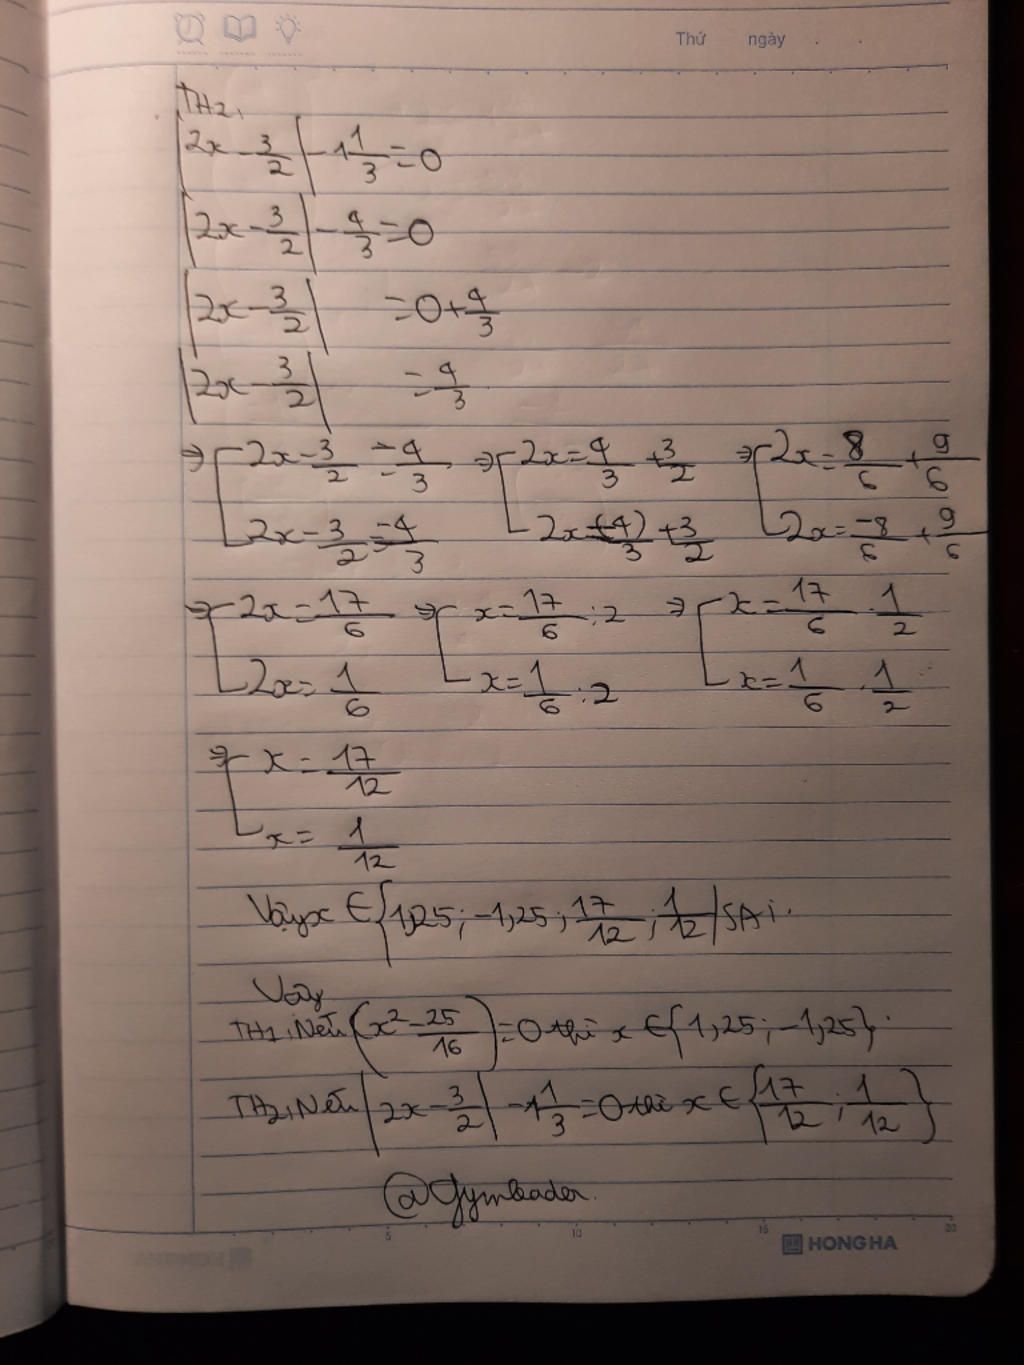 Thứ ngày . .
TH2,
|2x - 3/2| - 1 1/3 = 0
|2x - 3/2| - 4/3 = 0
|2x - 3/2| = 0 + 4/3
|2x - 3/2| = 4/3
⇒ [ 2x - 3/2 = 4/3 ⇒ [ 2x = 4/3 + 3/2 ⇒ [ 2x = 8/6 + 9/6
2x - 3/2 = -4/3 2x = (-4)/3 + 3/2 2x = -8/6 + 9/6
⇒ [ 2x = 17/6 ⇒ [ x = 17/6 : 2 ⇒ [ x = 17/6 . 1/2
2x = 1/6 x = 1/6 : 2 x = 1/6 . 1/2
⇒ [ x = 17/12
x = 1/12
Vậy x ∈ {1,25; -1,25; 17/12; 1/12 | SAi.
Vậy
TH1, Nếu (x² - 25/16) = 0 thì x ∈ {1,25; -1,25}.
TH2, Nếu |2x - 3/2| - 1 1/3 = 0 thì x ∈ {17/12; 1/12}
@Gymleader.
5 10 15 20
HONG HA